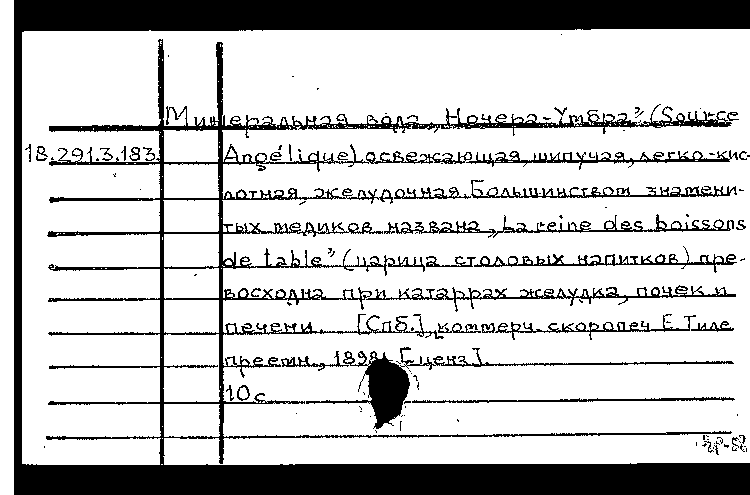 Минеральная вода „Ночера-Умбра” (Source
18.291.3.183. Angélique) освежающая, шипучая, легко-кис-
лотная, желудочная. Большинством знамени-
тых медиков названа „La reine des boissons
de table” (царица столовых напитков) пре-
восходна при катаррах желудка, почек и
печени. [Спб.], коммерч. скоропеч Е. Тиле
преемн., 1898 [ценз].
10 с